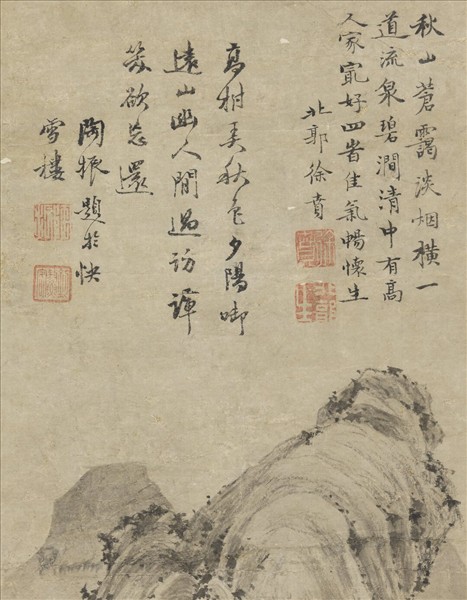 秋山蒼靄淡烟橫一
道流泉碧澗清中有高
人家㝡好四旹佳氣暢懷生
北郭徐賁
高樹秋色夕陽啣
遠山幽人閒過訪譚
笑欲忘還
陶振題於快
雪樓